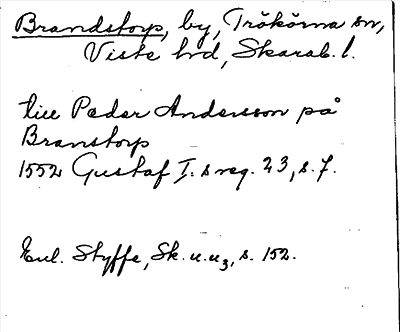 Brandstorp, by, Trökörna sn,
Viste hd, Skarab. l.
till Peder Andersson på
Branstorp
1552 Gustaf I. s reg. 23, s. 7.
Enl. Styffe, Sk. u. u3, s. 152.